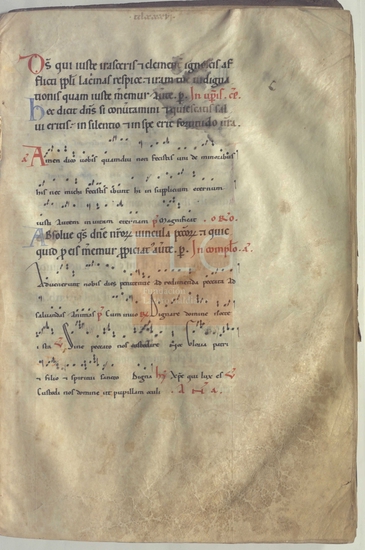 Ds qui iuste irasceris ⁊ clementer ignoscis af
flicti ppli lacrimas respice ⁊ iram tue indigna
tionis quam iuste meremur auerte. p. In uesperis.
Hec dicit dns si reuertamini ⁊ quiescatis sal
ui eritis in silentio ⁊ in spe erit fortitudo ura.
Amen dico uobis quamdiu non fecistis uni de minoribus
his nec michi fecistis ibunt hi in supplicium eternum
iusti autem in uitam eternam p Magnificat
Absolue qs dne nrorum uincula pccorum ⁊ quic
quid p eis meremur auerte. p. In complo. a.
Aduenerunt nobis dies penitentie ad redimenda peccata ad
saluandas animas p Cum inuo R Dignare domine die
ista V Sine peccato nos custodire Gloria patri
⁊ filio ⁊ spiritui sancto Digna hy Xpe qui lux es V
Custodi nos domine ut pupillam oculi